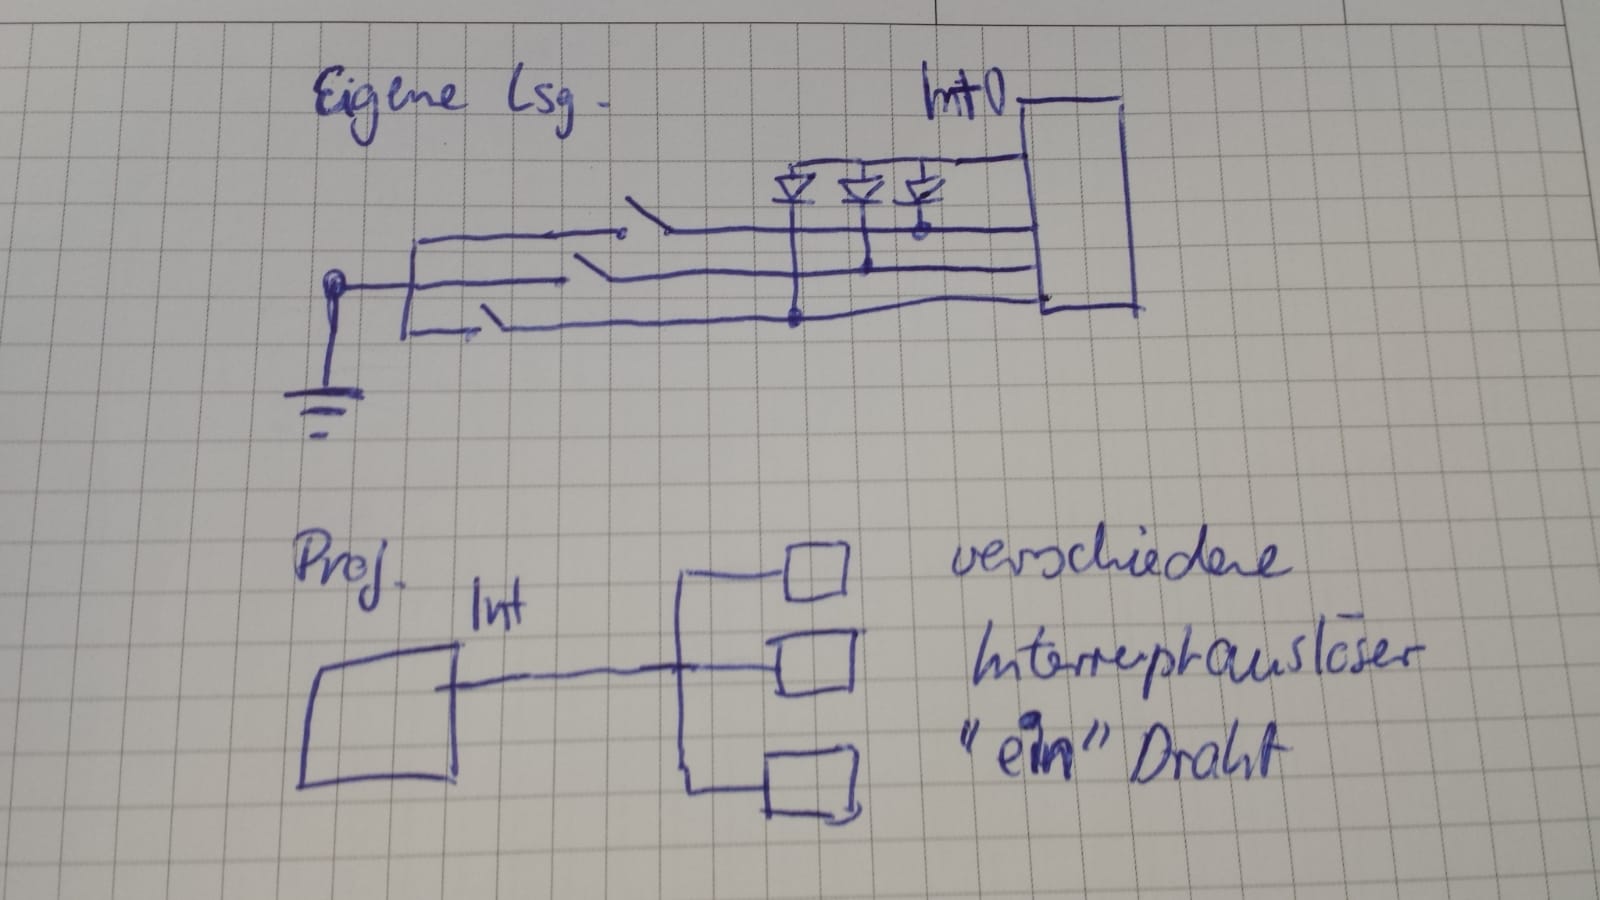 Eigene Lsg.
Int0
Proj.
Int
verschiedene
Interruptauslöser
"ein" Draht